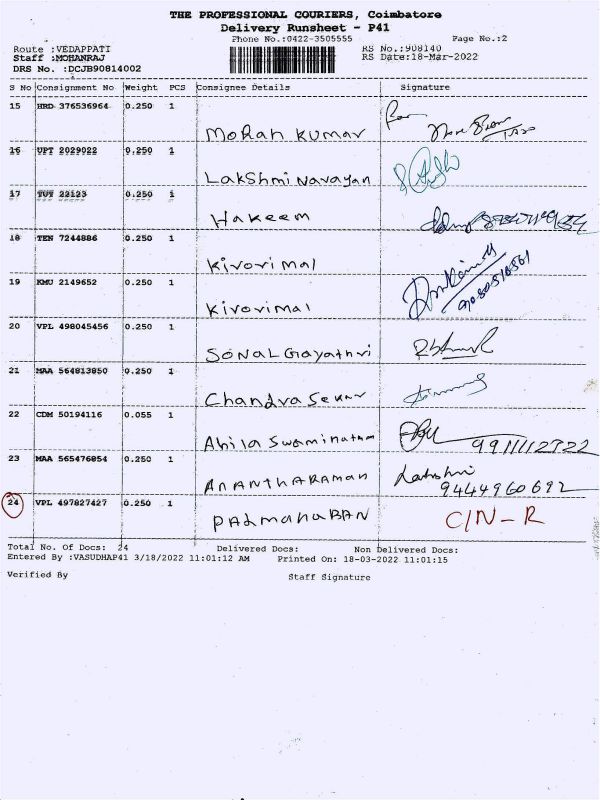 THE PROFESSIONAL COURIERS, Coimbatore
Delivery Runsheet - P41
Phone No.:0422-3505555 Page No.:2
Route :VEDAPPATI RS No.:908140
Staff :MOHANRAJ RS Date:18-Mar-2022
DRS No. :DCJB90814002
S No Consignment No Weight PCS Consignee Details Signature
15 HRD 376536964 0.250 1
Mohan Kumar
16 UPT 2029022 0.250 1
Lakshmi Narayan
17 TUT 22123 0.250 1
Hakeem
18 TEN 7244886 0.250 1
Kirorimal
19 KMU 2149652 0.250 1
Kirorimal
20 VPL 498045456 0.250 1
Sonal Gayathri
21 MAA 564813850 0.250 1
Chandra Sekar
22 CDM 50194116 0.055 1
Ahila Swaminathan 9911112722
23 MAA 565476854 0.250 1
ANANTHARAMAN Lakshmi
9444960692
24 VPL 497827427 0.250 1
PADMANABAN C/N-R
Total No. Of Docs: 24 Delivered Docs: Non Delivered Docs:
Entered By :VASUDHAP41 3/18/2022 11:01:12 AM Printed On: 18-03-2022 11:01:15
Verified By Staff Signature